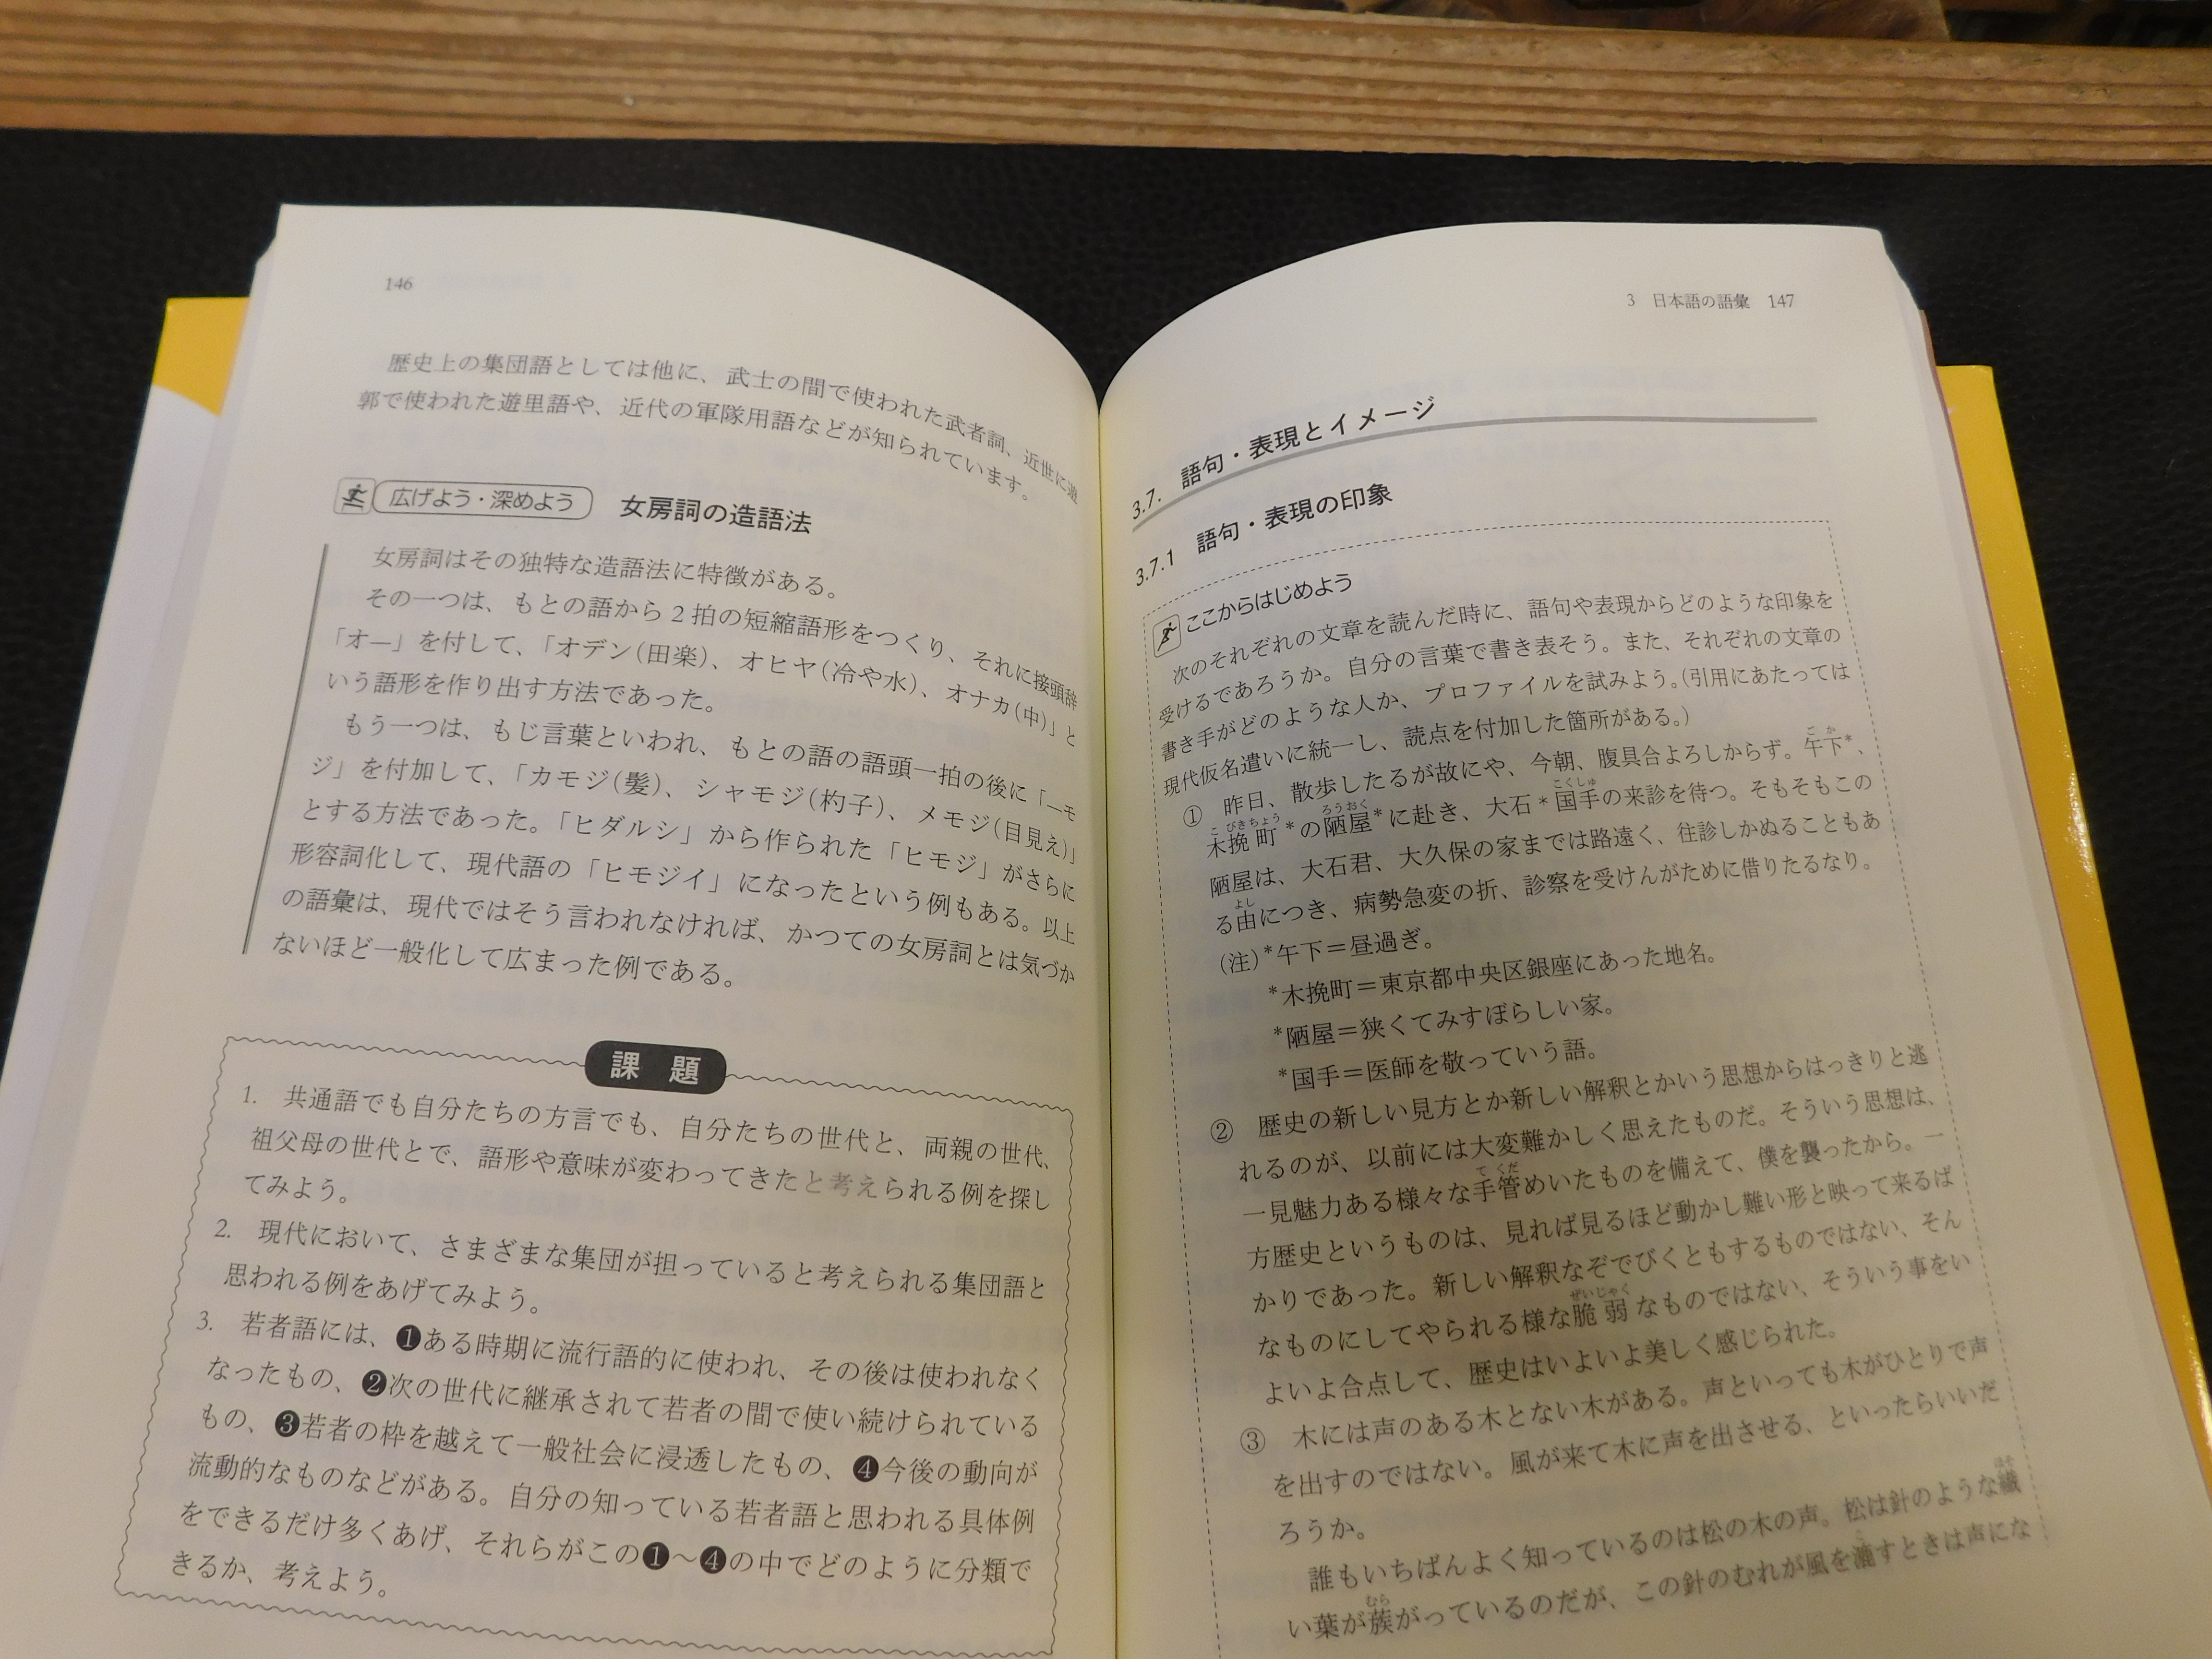 146
歴史上の集団語としては他に、武士の間で使われた武者詞、近世に遊
郭で使われた遊里語や、近代の軍隊用語などが知られています。
広げよう・深めよう 女房詞の造語法
女房詞はその独特な造語法に特徴がある。
その一つは、もとの語から2拍の短縮語形をつくり、それに接頭辞
「オ―」を付して、「オデン(田楽)、オヒヤ(冷や水)、オナカ(中)」と
いう語形を作り出す方法であった。
もう一つは、もじ言葉といわれ、もとの語の語頭一拍の後に「―モ
ジ」を付加して、「カモジ(髪)、シャモジ(杓子)、メモジ(目見え)」
とする方法であった。「ヒダルシ」から作られた「ヒモジ」がさらに
形容詞化して、現代語の「ヒモジイ」になったという例もある。以上
の語彙は、現代ではそう言われなければ、かつての女房詞とは気づか
ないほど一般化して広まった例である。
課題
1. 共通語でも自分たちの方言でも、自分たちの世代と、両親の世代、
祖父母の世代とで、語形や意味が変わってきたと考えられる例を探し
てみよう。
2. 現代において、さまざまな集団が担っていると考えられる集団語と
思われる例をあげてみよう。
3. 若者語には、❶ある時期に流行語的に使われ、その後は使われなく
なったもの、❷次の世代に継承されて若者の間で使い続けられている
もの、❸若者の枠を越えて一般社会に浸透したもの、❹今後の動向が
流動的なものなどがある。自分の知っている若者語と思われる具体例
をできるだけ多くあげ、それらがこの❶～❹の中でどのように分類で
きるか、考えよう。
3 日本語の語彙 147
3.7. 語句・表現とイメージ
3.7.1 語句・表現の印象
ここからはじめよう
次のそれぞれの文章を読んだ時に、語句や表現からどのような印象を
受けるであろうか。自分の言葉で書き表そう。また、それぞれの文章の
書き手がどのような人か、プロファイルを試みよう。(引用にあたっては
現代仮名遣いに統一し、読点を付加した箇所がある。)
こか
① 昨日、散歩したるが故にや、今朝、腹具合よろしからず。午下*、
こびきちょう ろうおく こくしゅ
木挽町*の陋屋*に赴き、大石*国手の来診を待つ。そもそもこの
陋屋は、大石君、大久保の家までは路遠く、往診しかぬることもあ
よし
る由につき、病勢急変の折、診察を受けんがために借りたるなり。
(注)*午下＝昼過ぎ。
*木挽町＝東京都中央区銀座にあった地名。
*陋屋＝狭くてみすぼらしい家。
*国手＝医師を敬っていう語。
② 歴史の新しい見方とか新しい解釈とかいう思想からはっきりと逃
れるのが、以前には大変難かしく思えたものだ。そういう思想は、
てくだ
一見魅力ある様々な手管めいたものを備えて、僕を襲ったから。一
方歴史というものは、見れば見るほど動かし難い形と映って来るば
かりであった。新しい解釈なぞでびくともするものではない、そん
ぜいじゃく
なものにしてやられる様な脆弱なものではない、そういう事をい
よいよ合点して、歴史はいよいよ美しく感じられた。
③ 木には声のある木とない木がある。声といっても木がひとりで声
を出すのではない。風が来て木に声を出させる、といったらいいだ
ろうか。
誰もいちばんよく知っているのは松の木の声。松は針のような繊
むら
い葉が簇がっているのだが、この針のむれが風を漉すときは声にな